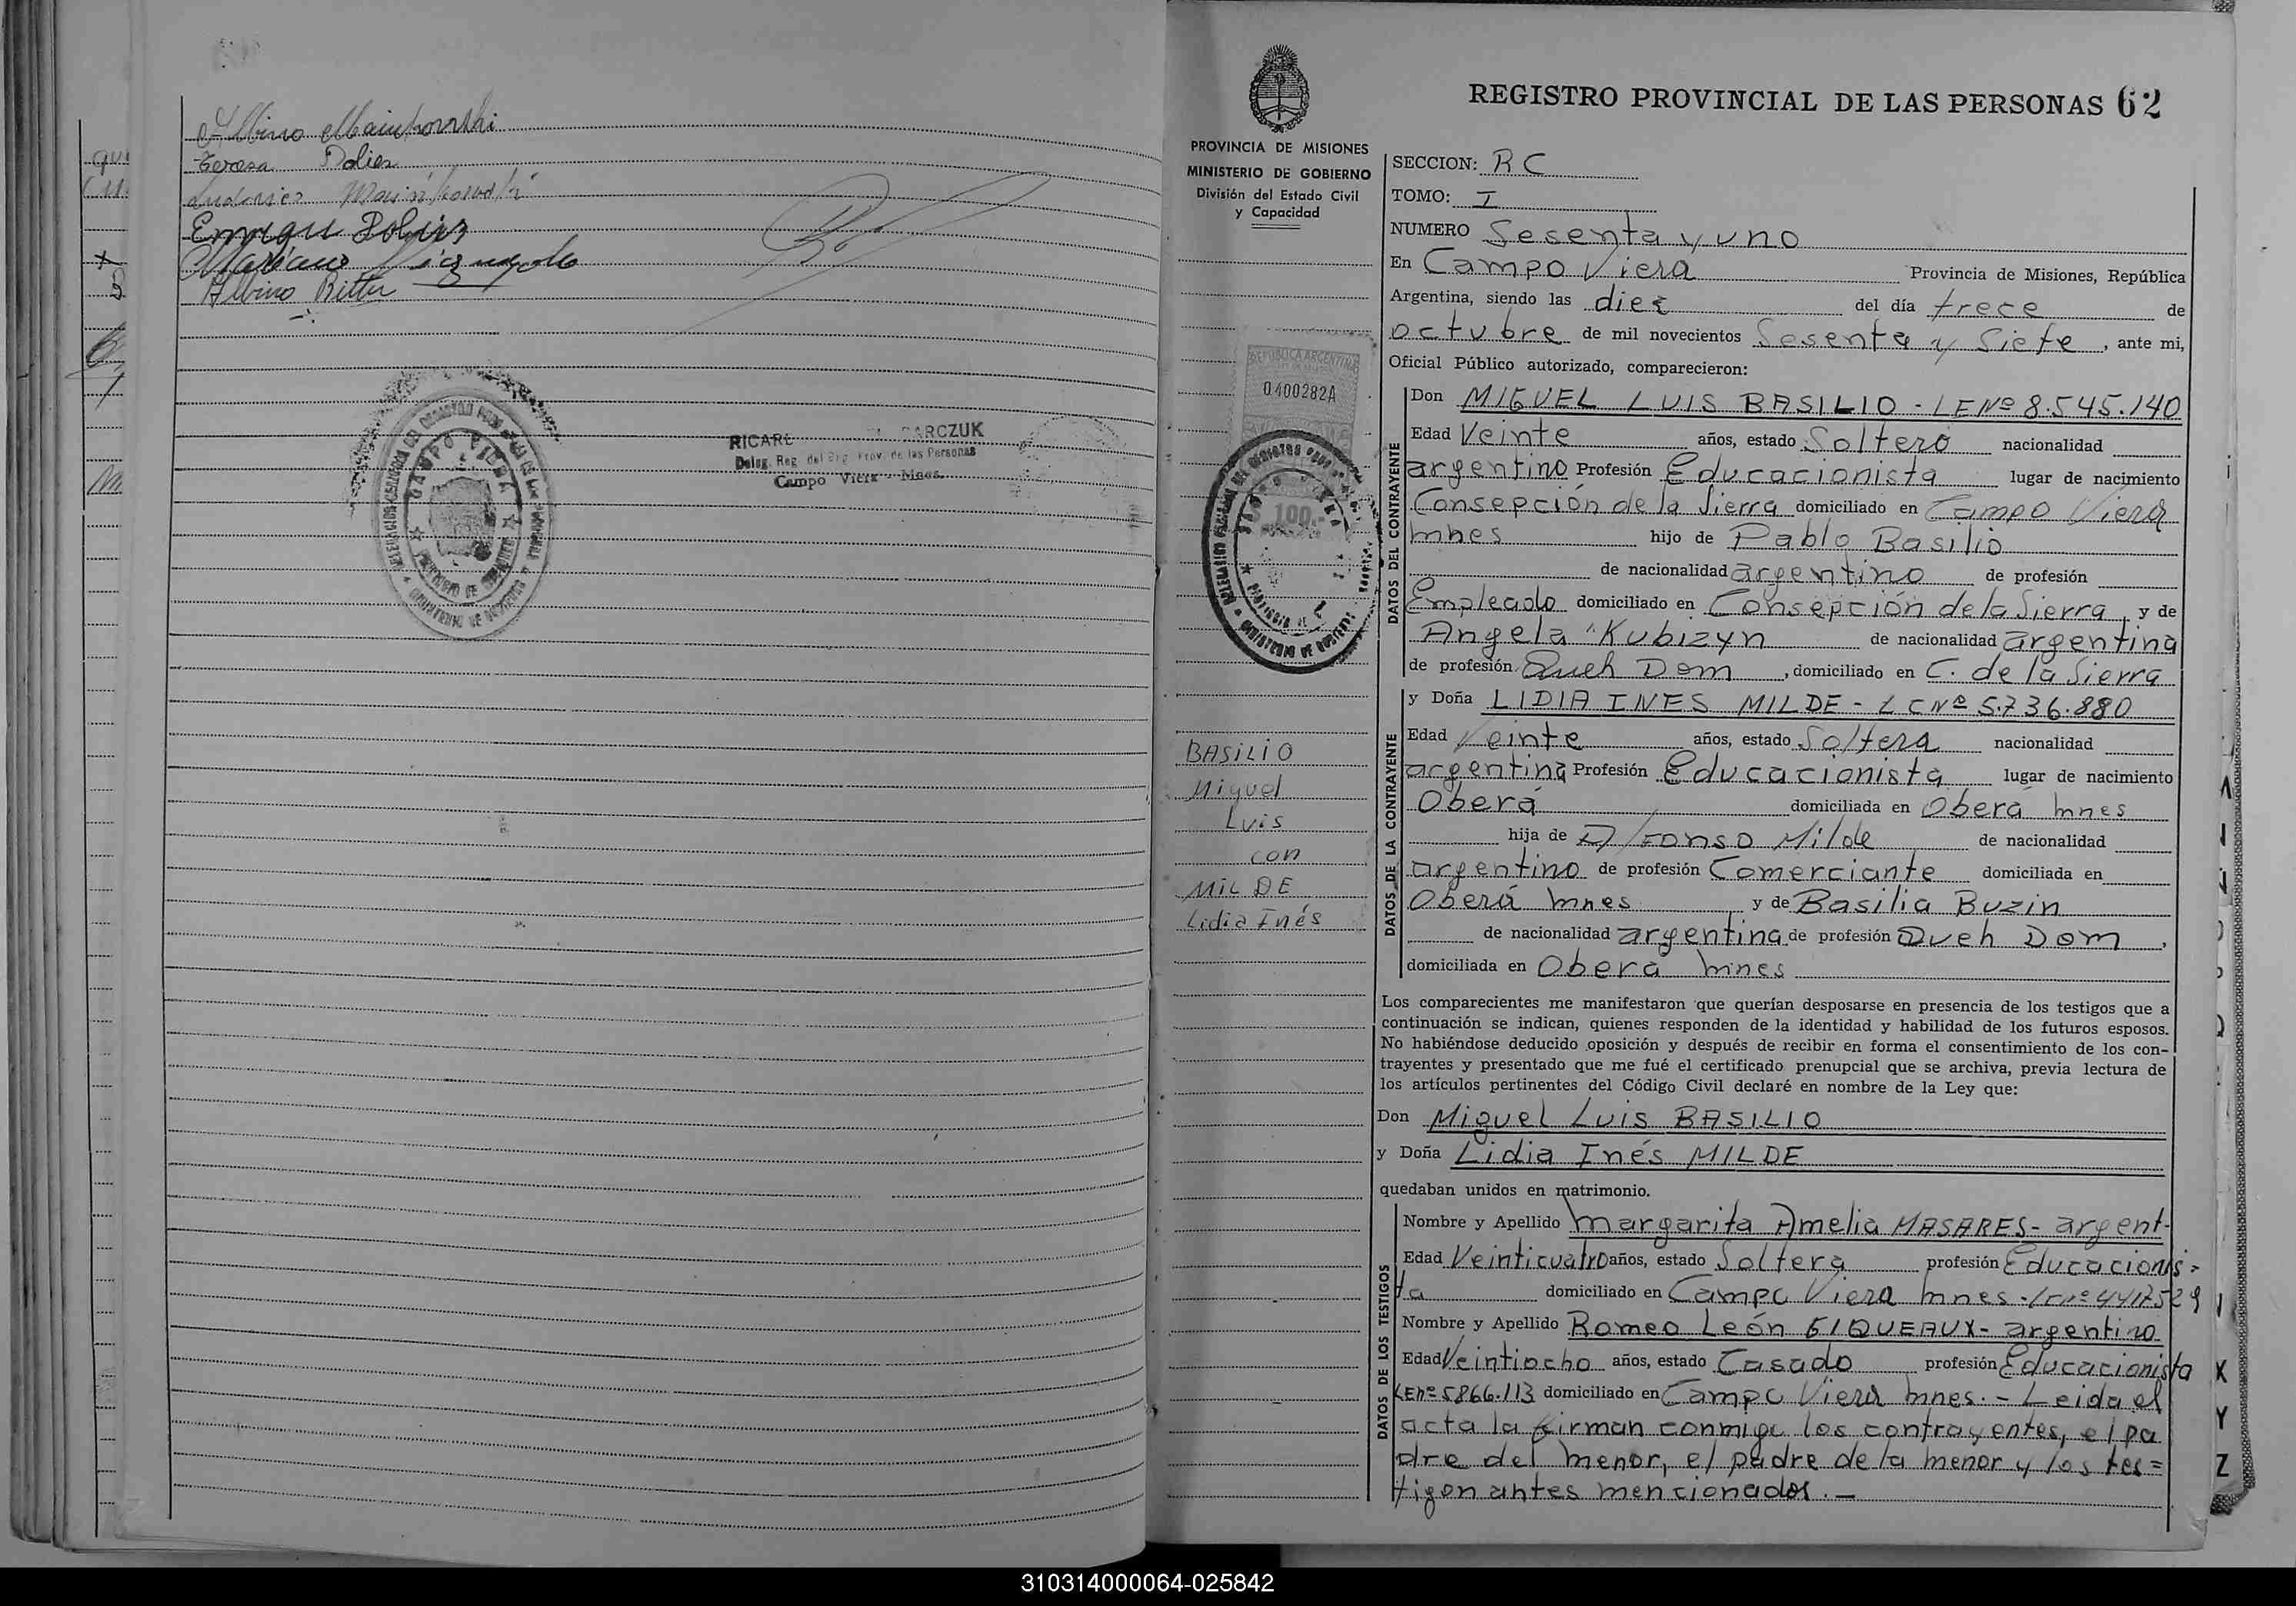 Albino
Teresa Dolier
Ludovico
Enrique
Mariano
Albino Ritter
CAMPO VIERA
RICARD ARCZUK
Deleg. Reg. del Reg. Prov. de las Personas
Campo Viera - Mnes.
REGISTRO PROVINCIAL DE LAS PERSONAS 62
PROVINCIA DE MISIONES
MINISTERIO DE GOBIERNO
División del Estado Civil
y Capacidad
REPUBLICA ARGENTINA
0400282A
100
BASILIO
Miguel
Luis
con
MILDE
Lidia Inés
SECCION: RC
TOMO: I
NUMERO Sesenta y uno
En Campo Viera Provincia de Misiones, República
Argentina, siendo las diez del día trece de
octubre de mil novecientos Sesenta y Siete, ante mi,
Oficial Público autorizado, comparecieron:
DATOS DEL CONTRAYENTE
Don MIGUEL LUIS BASILIO - LE Nº 8.545.140
Edad Veinte años, estado Soltero nacionalidad
argentino Profesión Educacionista lugar de nacimiento
Consepción de la Sierra domiciliado en Campo Viera
Mnes hijo de Pablo Basilio
de nacionalidad argentino de profesión
Empleado domiciliado en Consepción de la Sierra, y de
Angela Kubizyn de nacionalidad argentina
de profesión Queh Dom, domiciliado en C. de la Sierra
DATOS DE LA CONTRAYENTE
y Doña LIDIA INES MILDE - LC Nº 5.736.880
Edad Veinte años, estado Soltera nacionalidad
argentina Profesión Educacionista lugar de nacimiento
Oberá domiciliada en Oberá Mnes
hija de Alfonso Milde de nacionalidad
argentino de profesión Comerciante domiciliada en
Oberá Mnes y de Basilia Buzin
de nacionalidad argentina de profesión Queh Dom,
domiciliada en Oberá Mnes
Los comparecientes me manifestaron que querían desposarse en presencia de los testigos que a
continuación se indican, quienes responden de la identidad y habilidad de los futuros esposos.
No habiéndose deducido oposición y después de recibir en forma el consentimiento de los con-
trayentes y presentado que me fué el certificado prenupcial que se archiva, previa lectura de
los artículos pertinentes del Código Civil declaré en nombre de la Ley que:
Don Miguel Luis BASILIO
y Doña Lidia Inés MILDE
quedaban unidos en matrimonio.
DATOS DE LOS TESTIGOS
Nombre y Apellido Margarita Amelia MASARES - argent-
Edad Veinticuatro años, estado Soltera profesión Educacionis-
ta domiciliado en Campo Viera Mnes - LC nº 4417529
Nombre y Apellido Romeo León GIQUEAUX - argentino
Edad Veintiocho años, estado Casado profesión Educacionista
LE nº 5866.113 domiciliado en Campo Viera Mnes. - Leida el
acta la firman conmigo los contrayentes, el pa
dre del menor, el padre de la menor y los tes=
tigon antes mencionados. -
K
Y
Z
310314000064-025842